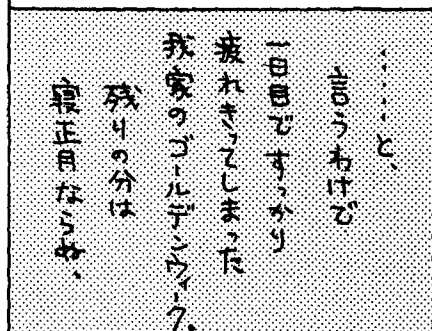 ……と、
言うわけで
一日目ですっかり
疲れきってしまった
我家のゴールデンウィーク。
残りの分は
寝正月ならぬ、